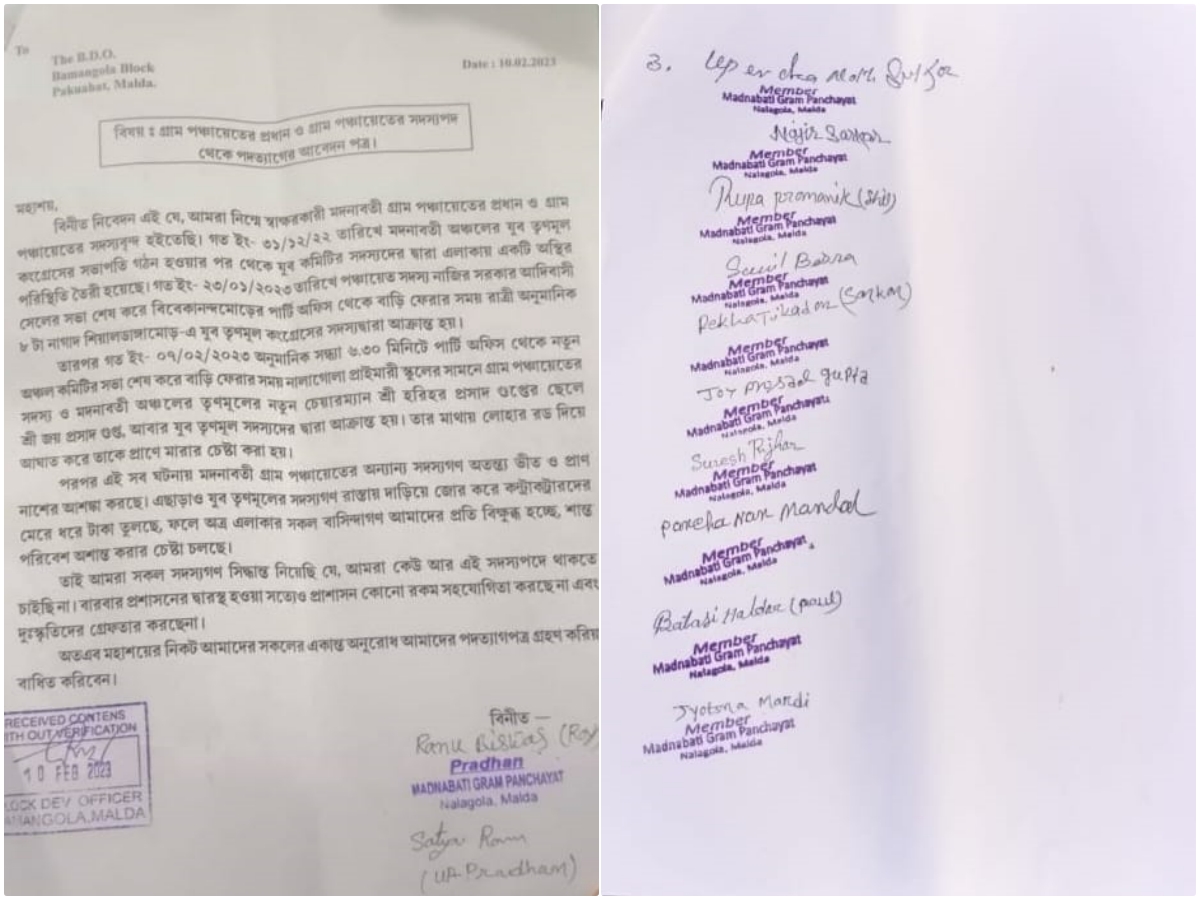 To
The B.D.O.
Bamangola Block
Pakuahat, Malda.
Date : 10.02.2023
বিষয় ঃ গ্রাম পঞ্চায়েতের প্রধান ও গ্রাম পঞ্চায়েতের সদস্যপদ
থেকে পদত্যাগের আবেদন পত্র।
মহাশয়,
বিনীত নিবেদন এই যে, আমরা নিম্নে স্বাক্ষরকারী মদনাবতী গ্রাম পঞ্চায়েতের প্রধান ও গ্রাম
পঞ্চায়েতের সদস্যবৃন্দ হইতেছি। গত ইং- ৩১/১২/২২ তারিখে মদনাবতী অঞ্চলের যুব তৃণমূল
কংগ্রেসের সভাপতি গঠন হওয়ার পর থেকে যুব কমিটির সদস্যদের দ্বারা এলাকায় একটি অস্থির
পরিস্থিতি তৈরী হয়েছে। গত ইং- ২৩/০১/২০২৩ তারিখে পঞ্চায়েত সদস্য নাজির সরকার আদিবাসী
সেলের সভা শেষ করে বিবেকানন্দমোড়ের পার্টি অফিস থেকে বাড়ি ফেরার সময় রাত্রী অনুমানিক
৮ টা নাগাদ শিয়ালডাঙ্গামোড়-এ যুব তৃণমূল কংগ্রেসের সদস্যদ্বারা আক্রান্ত হয়।
তারপর গত ইং- ০৭/০২/২০২৩ অনুমানিক সন্ধ্যা ৬.৩০ মিনিটে পার্টি অফিস থেকে নতুন
অঞ্চল কমিটির সভা শেষ করে বাড়ি ফেরার সময় নালাগোলা প্রাইমারী স্কুলের সামনে গ্রাম পঞ্চায়েতের
সদস্য ও মদনাবতী অঞ্চলের তৃণমূলের নতুন চেয়ারম্যান শ্রী হরিহর প্রসাদ গুপ্তের ছেলে
শ্রী জয় প্রসাদ গুপ্ত, আবার যুব তৃণমূল সদস্যদের দ্বারা আক্রান্ত হয়। তার মাথায় লোহার রড দিয়ে
আঘাত করে তাকে প্রাণে মারার চেষ্টা করা হয়।
পরপর এই সব ঘটনায় মদনাবতী গ্রাম পঞ্চায়েতের অন্যান্য সদস্যগণ অতন্ত্য ভীত ও প্রাণ
নাশের আশঙ্কা করছে। এছাড়াও যুব তৃণমূলের সদস্যগণ রাস্তায় দাড়িয়ে জোর করে কন্ট্রাকটারদের
মেরে ধরে টাকা তুলছে, ফলে অত্র এলাকার সকল বাসিন্দাগণ আমাদের প্রতি বিক্ষুব্ধ হচ্ছে, শান্ত
পরিবেশ অশান্ত করার চেষ্টা চলছে।
তাই আমরা সকল সদস্যগণ সিদ্ধান্ত নিয়েছি যে, আমরা কেউ আর এই সদস্যপদে থাকতে
চাইছি না। বারবার প্রশাসনের দ্বারস্থ হওয়া সত্যেও প্রাশাসন কোনো রকম সহযোগিতা করছে না এবং
দুঃস্কৃতিদের গ্রেফতার করছেনা।
অতএব মহাশয়ের নিকট আমাদের সকলের একান্ত অনুরোধ আমাদের পদত্যাগপত্র গ্রহণ করিয়া
বাধিত করিবেন।
RECEIVED CONTENS
ITH OUT VERIFICATION
10 FEB 2023
LOCK DEV OFFICER
AMANGOLA, MALDA
বিনীত —
Ranu Biswas (Roy)
Pradhan
MADNABATI GRAM PANCHAYAT
Nalagola, Malda
Satya Ram
(UP Pradham)
3.
Member
Madnabati Gram Panchayat
Nalagola, Malda
Najir Sarkar
Member
Madnabati Gram Panchayat
Nalagola, Malda
Rupa Promanik (Shil)
Member
Madnabati Gram Panchayat
Nalagola, Malda
Sunil Basra
Member
Madnabati Gram Panchayat
Nalagola, Malda
Rekha Tikadar (Sarkar)
Member
Madnabati Gram Panchayat
Nalagola, Malda
Joy Prosad gupta
Member
Madnabati Gram Panchayat
Nalagola, Malda
Suresh Rijhar
Member
Madnabati Gram Panchayat
Nalagola, Malda
Pancha Nan Mandal
Member
Madnabati Gram Panchayat
Nalagola, Malda
Batasi Haldar (paul)
Member
Madnabati Gram Panchayat
Nalagola, Malda
Jyotsna Mardi
Member
Madnabati Gram Panchayat
Nalagola, Malda